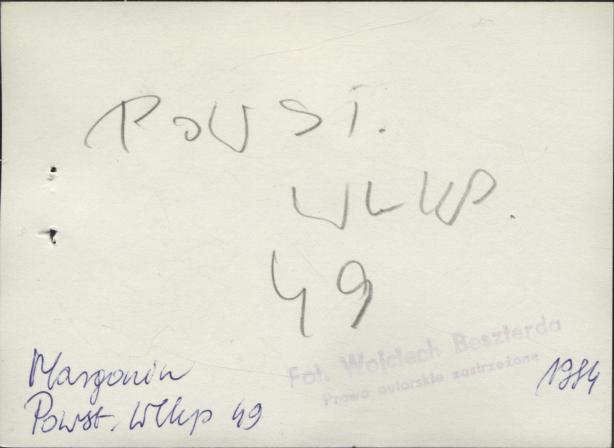 POWST.
WLKP.
49
Fot. Wojciech Beszterda
Prawa autorskie zastrzeżone
1984
Margonin
Powst. Wlkp 49